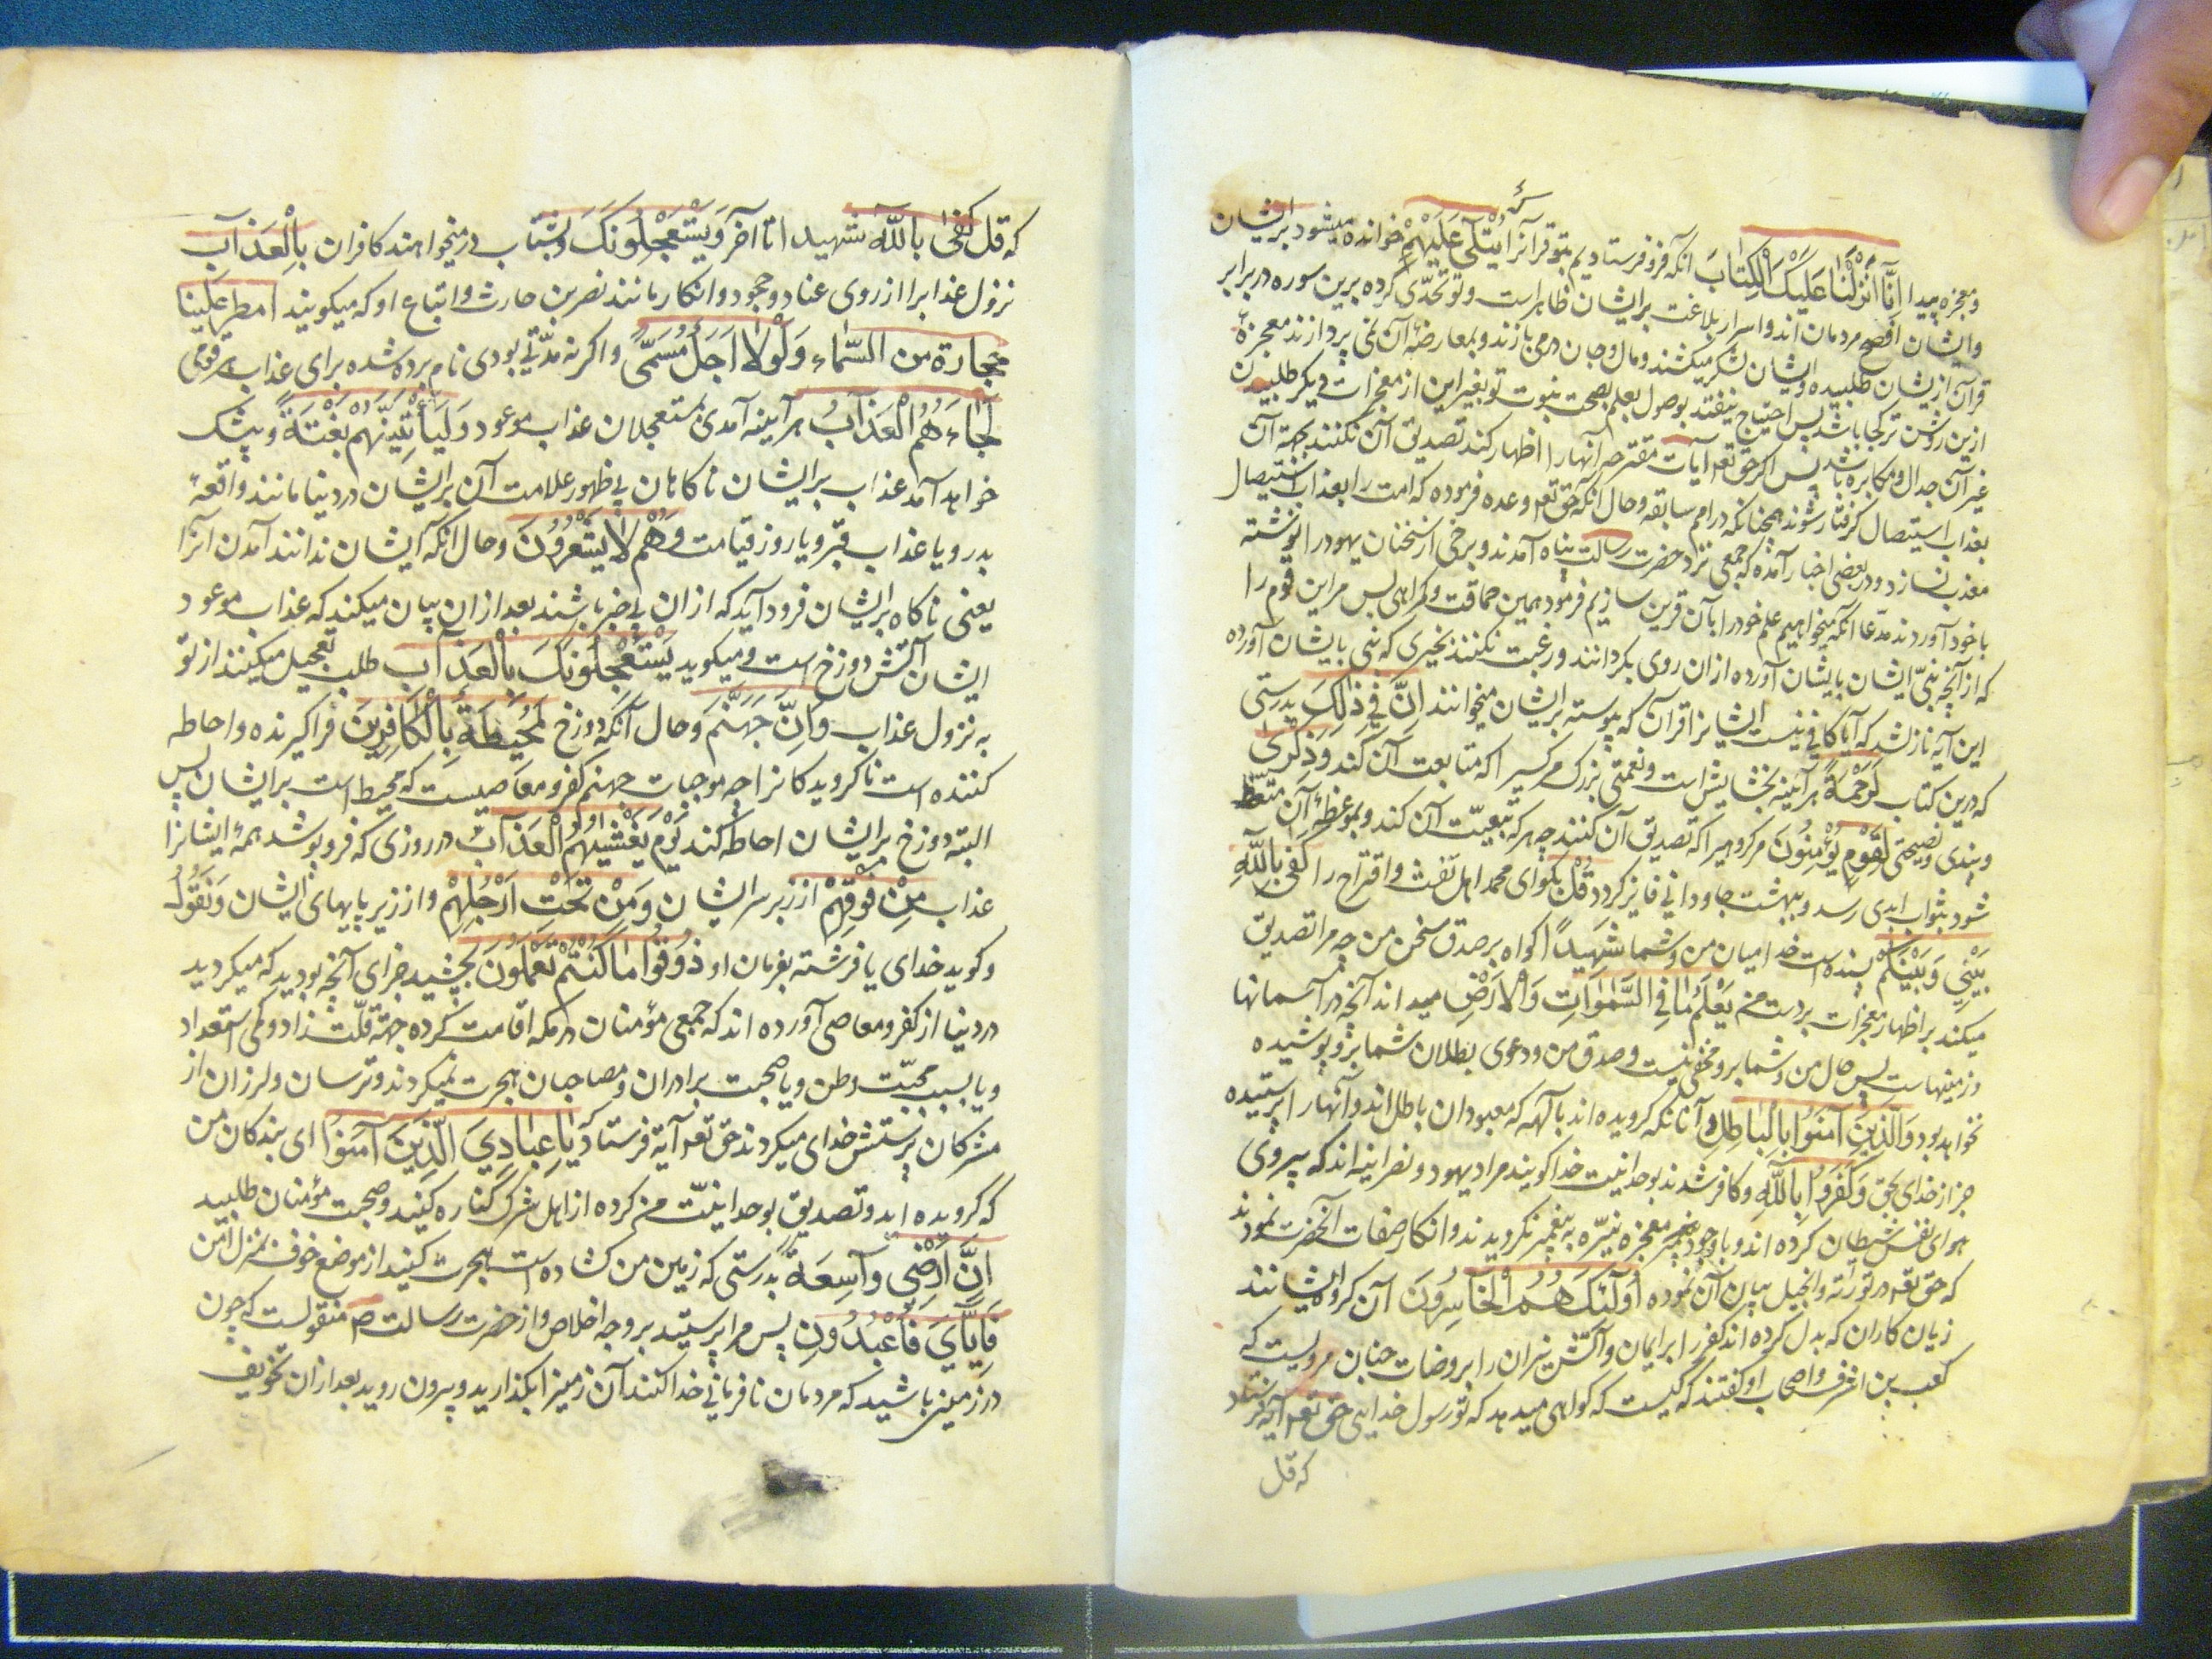 و معجزه پیدا اَنَّا اَنْزَلْنَا عَلَیْكَ الْكِتَابَ انکه فرو فرستادیم بتو قرآنرا یُتْلی عَلَیْهِمْ خوانده میشود بر ایشان
و ایشان افصح مردمان اند و اسرار بلاغت بر ایشان ظاهر است و تو تحدّی کرده برین سوره در برابر
قرآن از یشان طلبیده و ایشان لشکر میکشند و مال و جان در می بازند و بمعارضهٔ آن نمی پردازند معجزهٔ
ازین روشن تر کجا باشد پس احتیاج نیفتد بوصول بعلم بصحت نبوت تو بغیر این از معجزات دیکر طلبیدن
غیر آن جدال و مکابره باشد پس اکر حق تعه آیات مقترحه آنها را اظهار کند تصدیق آن نکنند بجهة آن
بعذاب استیصال کرفتار شوند همچنانکه در امم سابقه و حال آنکه حق تعه وعده فرموده که امت را بعذاب استیصال
معذب نسازد و در بعضی اخبار آمده که جمعی نزد حضرت رسالت پناه آمدند و برخی از سخنان یهود را نوشته
با خود آوردند مدّعا آنکه میخواهیم علم خود را بآن قرین سازیم فرمود همین حماقت و کمراهی بس مر این قوم را
که از آنچه نبیّ ایشان بایشان آورده از ان روی بکردانند و رغبت نکنند بخیری که نبی بایشان آورده
این آیه نازل شد که آیا کافی نیست ایشانرا قرآن که پیوسته بر ایشان میخوانند اِنَّ فِی ذٰلِكَ بدرستی
که درین کتاب لَرَحْمَةً هر آینه بخشایش است و نعمتی بزرک مر کسیرا که متابعت آن کند وَ ذِكْرٰی
و پندی و نصیحتی لِقَوْمٍ یُؤْمِنُونَ مر کروهیرا که تصدیق آن کنند چه هر که تبعیّت آن کند و بموعظهٔ آن متعظ
شود بثواب ابدی رسد و ببهشت جاودانی فایز کردد قُلْ بکو ای محمد اهل تعنت و اقتراح را كَفٰی بِاللّٰهِ
بَیْنِی وَ بَیْنَكُمْ بسنده است خدا میان من و شما شَهِیداً کواه بر صدق سخن من چه مرا تصدیق
میکند بر اظهار معجزات بر دست من یَعْلَمُ مٰا فِی السَّمٰوَاتِ وَ الْاَرْضِ میداند آنچه در آسمانها
و زمینهاست پس حال من و شما برو مخفی نیست و صدق من و دعوی بطلان شما برو پوشیده
نخواهد بود وَ الَّذِینَ آمَنُوا بِالْبٰاطِلِ و آنانکه کرویده اند بآلهه که معبودان باطل اند و آنها را پرستیده
جز از خدای بحق وَ كَفَرُوا بِاللّٰهِ و کافر شدند بوحدانیت خدا کویند مراد یهود و نصرانیه اند که پیروی
هوای نفس شیطان کرده اند و با وجود معجزه نیّره به پیغمبر نکرویدند و انکار صفات آنحضرت نمودند
که حق تعه در توراة و انجیل بیان آن نموده اُولٰئِكَ هُمُ الْخَاسِرُونَ آن کروه ایشانند
زیان کاران که بدل کرده اند کفر را بر ایمان و آتش نیران را بر روضات جنان مرویست که
کعب بن اشرف و اصحاب او کفتند که کیست که کواهی میدهد که تو رسول خدایی حق تعه آیه فرستاد
که قل
که قل كَفٰی بِاللّٰه شهیدا تا آخر وَ یَسْتَعْجِلُونَكَ و بشتاب در میخواهند کافران بِالْعَذَابِ
نزول عذابرا از روی عناد و جحود و انکار مانند نضر بن حارث و اتباع او که میکویند امطر علینا
حجارة من السّماء وَ لَوْلٰا اَجَلٌ مُسَمًّی و اکر نه مدّتی بودی نام برده شده برای عذاب هر قومی
لَجَاءَهُمُ الْعَذَابُ هر آینه آمدی بمستعجلان عذاب موعود وَ لَیَأْتِیَنَّهُمْ بَغْتَةً و بیشک
خواهد آمد عذاب بر ایشان ناکاهان بی ظهور علامت آن بر ایشان در دنیا مانند واقعهٔ
بدر و یا عذاب قبر و یا روز قیامت وَ هُمْ لٰا یَشْعُرُونَ و حال آنکه ایشان ندانند آمدن آنرا
یعنی ناکاه بر ایشان فرود آید که از ان بی خبر باشند بعد از ان بیان میکند که عذاب موعود
ایشان آتش دوزخ است و میکوید یَسْتَعْجِلُونَكَ بِالْعَذَابِ طلب تعجیل میکنند از تو
به نزول عذاب وَ اِنَّ جَهَنَّمَ و حال آنکه دوزخ لَمُحِیطَةٌ بِالْكَافِرِینَ فراکیرنده و احاطه
کننده است ناکرویدکانرا چه موجبات جهنم کفر و معاصیست که محیط است بر ایشان پس
البته دوزخ بر ایشان احاطه کند یَوْمَ یَغْشٰیهُمُ الْعَذَابُ در روزی که فرو پوشد همهٔ ایشانرا
عذاب مِنْ فَوْقِهِمْ از زبر سر ایشان وَ مِنْ تَحْتِ اَرْجُلِهِمْ و از زیر پایهای ایشان وَ نَقُولُ
و کوید خدای یا فرشته بفرمان او ذُوقُوا مٰا كُنْتُمْ تَعْمَلُونَ بچشید جزای آنچه بودید که میکردید
در دنیا از کفر و معاصی آورده اند که جمعی مؤمنان در مکه اقامت کرده جهة قلّت زاد و کمی استعداد
و یا بسبب محبّت وطن و یا صحبت برادران و مصاحبان هجرت نمیکردند و ترسان و لرزان از
مشرکان پرستش خدای میکردند حق تعه آیة فرستاد یٰا عِبٰادِیَ الَّذِینَ آمَنُوا ای بندکان من
که کرویده اید و تصدیق بوحدانیّت من کرده از اهل شرک کناره کنید و صحبت مؤمنان طلبید
اِنَّ اَرْضِی وٰاسِعَةٌ بدرستی که زمین من کشاده است هجرت کنید از موضع خوف بمنزل امن
فَاِیَّایَ فَاعْبُدُونِ پس مرا پرستید بر وجه اخلاص و از حضرت رسالت ص منقولست که چون
در زمینی باشید که مردمان نافرمانی خدا کنند آن زمینرا بکذارید و بیرون روید بعد از ان تخویف